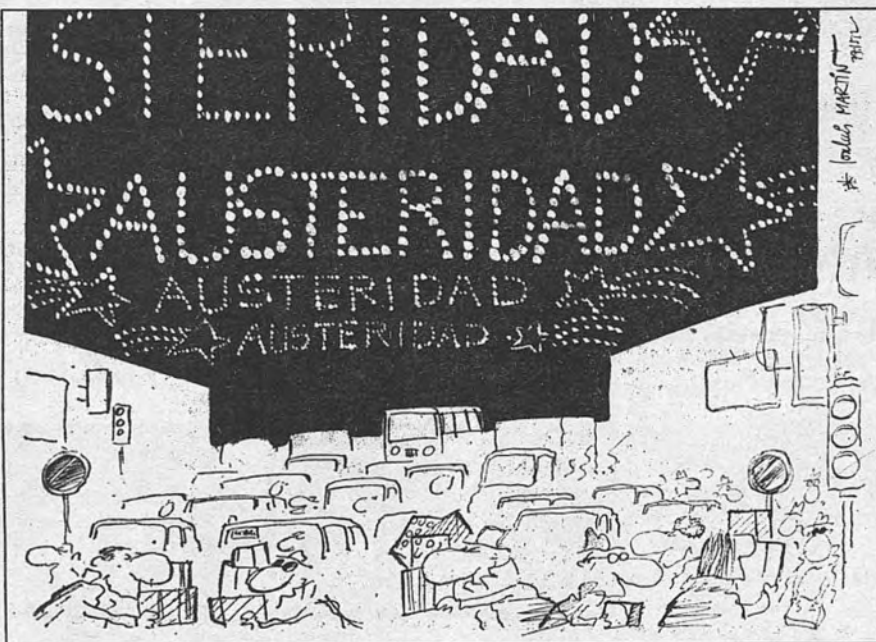 STERIDAD
AUSTERIDAD
AUSTERIDAD
AUSTERIDAD
MARTÍN